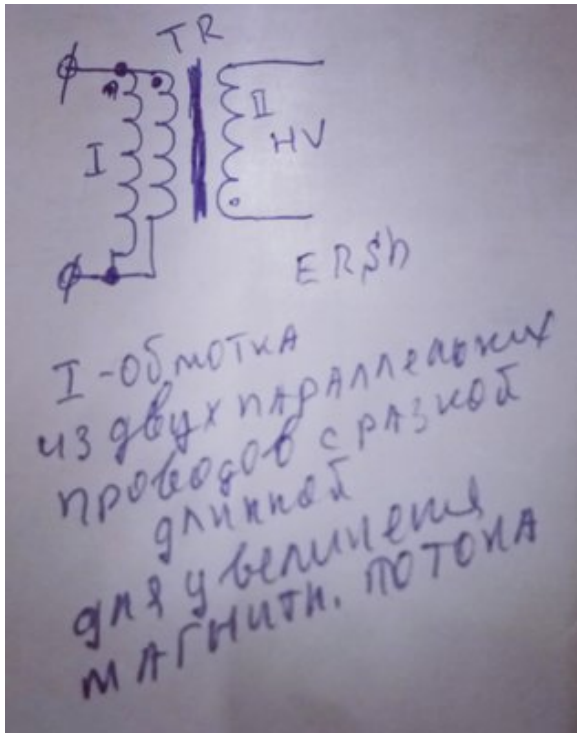 TR
I
II
HV
ERSh
I-обмотка
из двух параллельных
проводов с разной
длинной
для увеличения
магнитн. потока